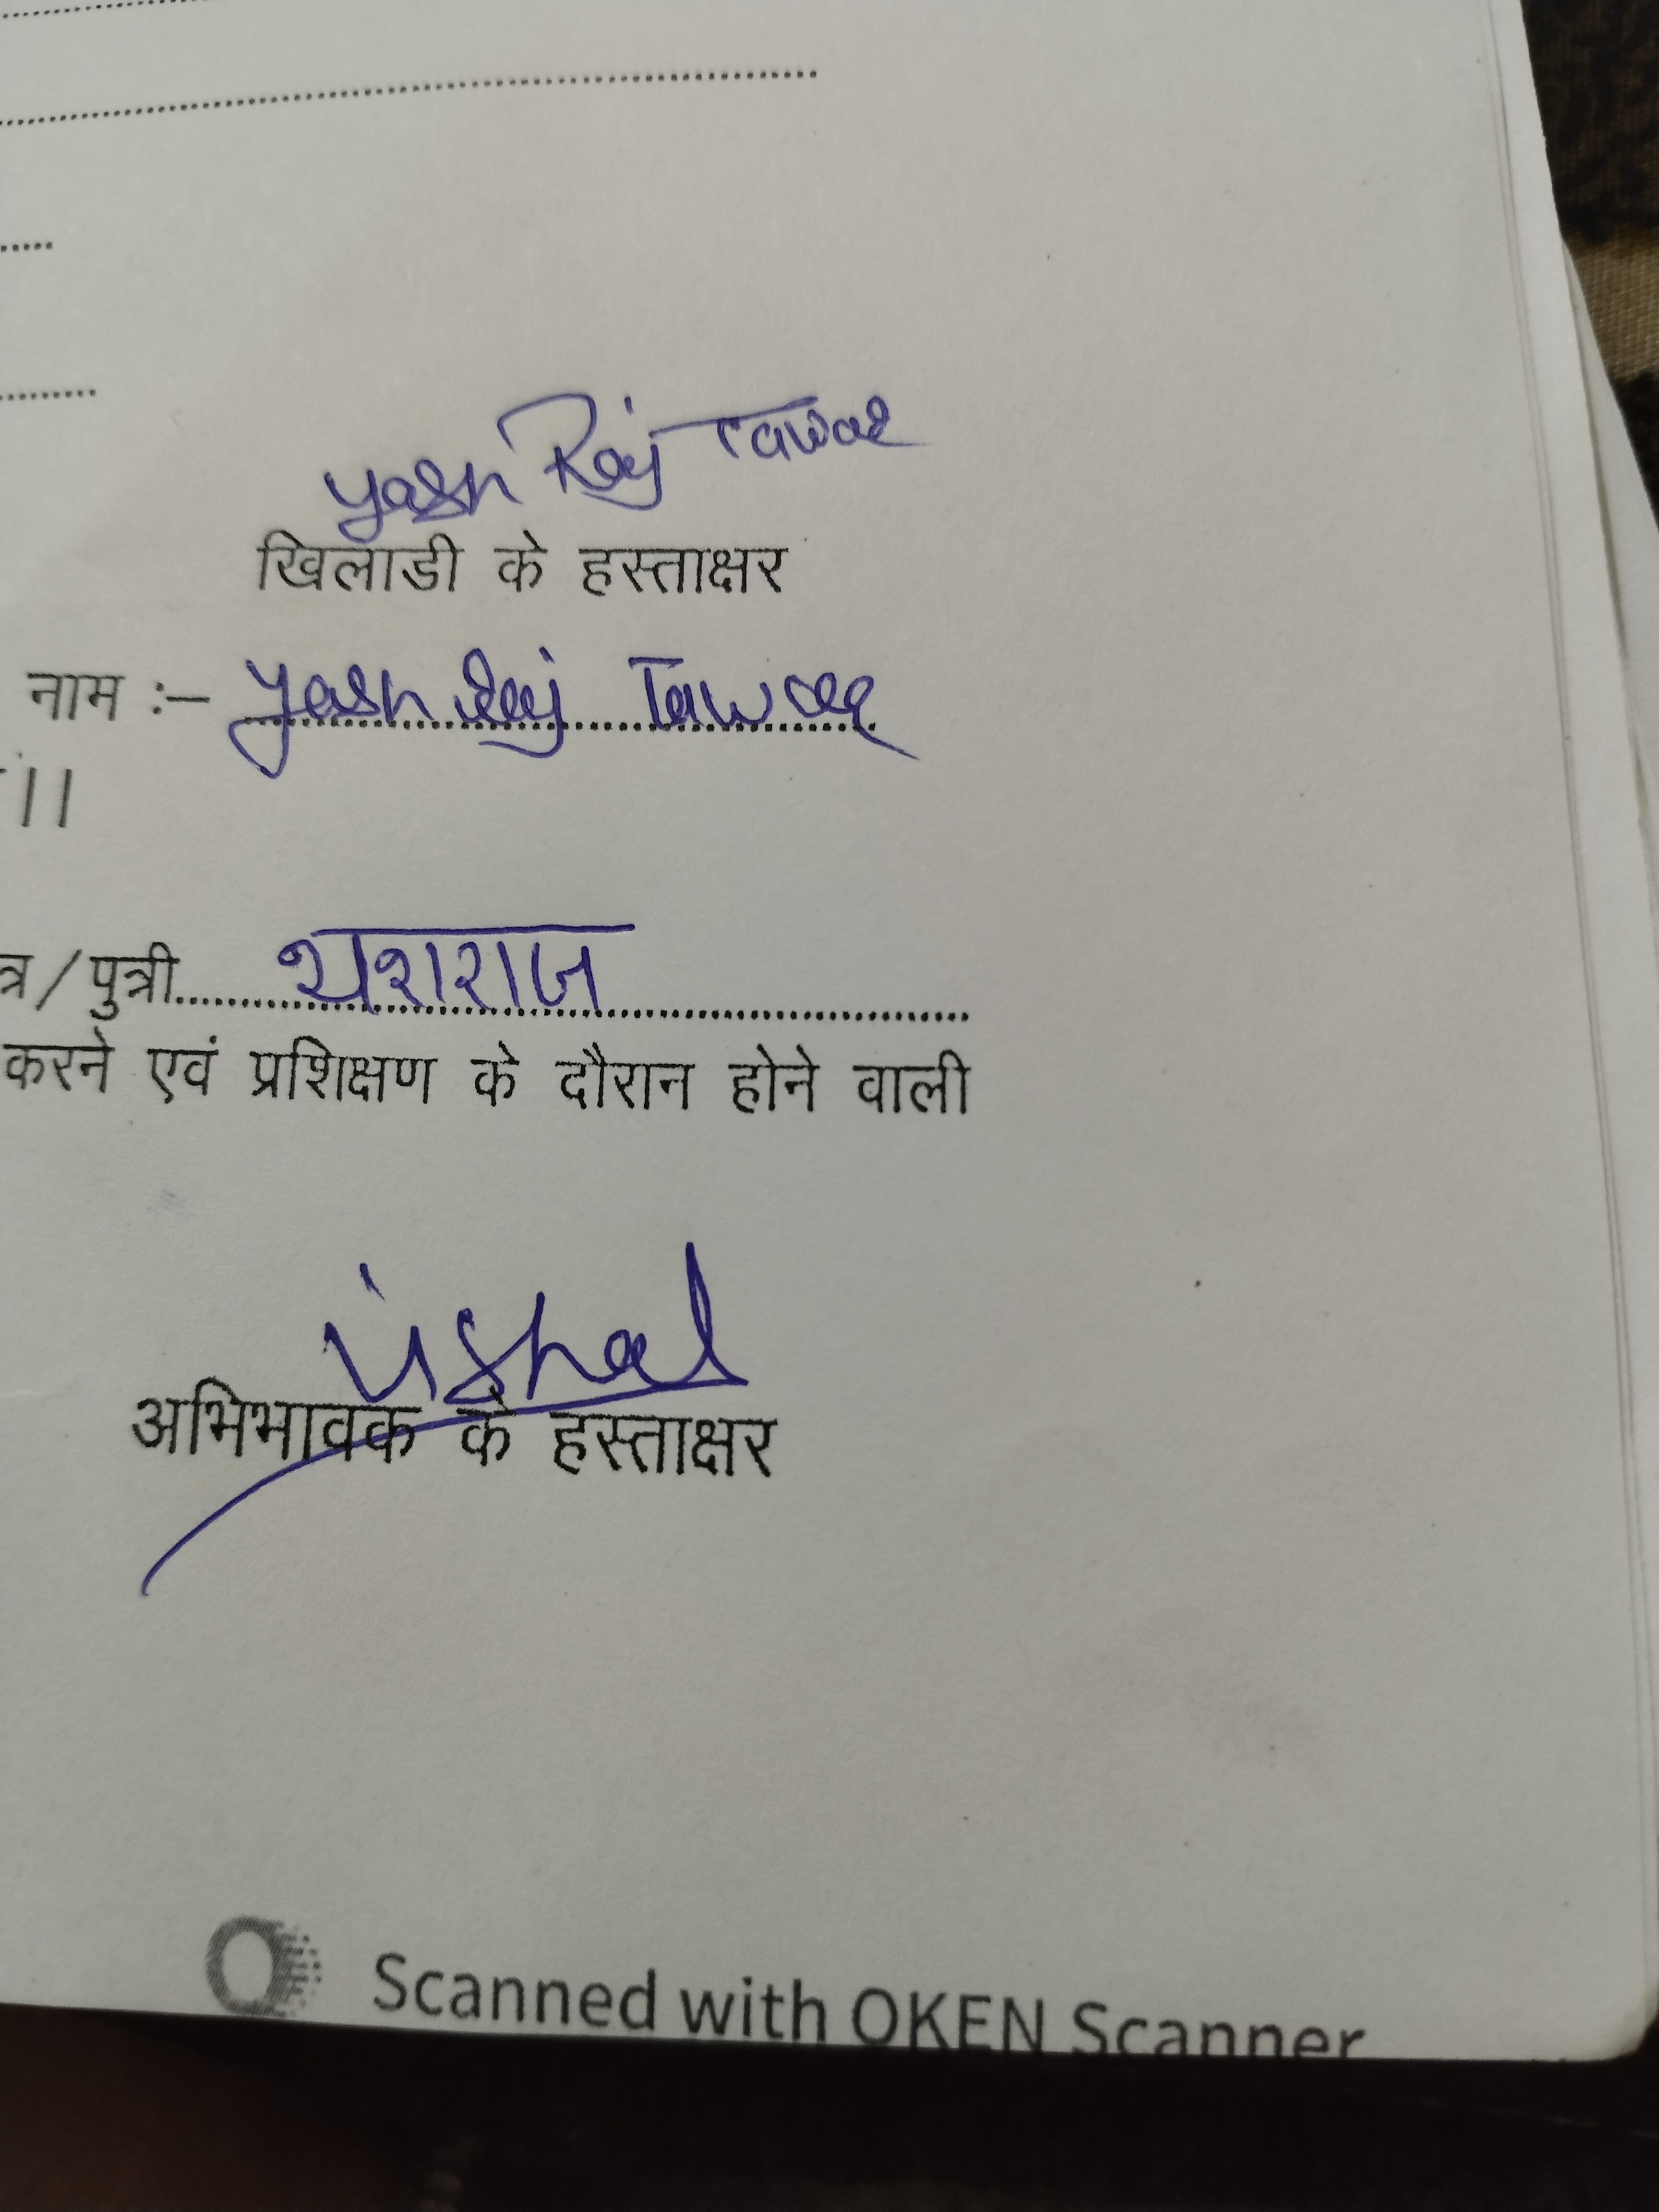 Yash Raj Tawar
खिलाडी के हस्ताक्षर
नाम :– Yash Raj Tawar
।।
त्र/पुत्री यशराज
करने एवं प्रशिक्षण के दौरान होने वाली
Vishal
अभिभावक के हस्ताक्षर
Scanned with OKEN Scanner